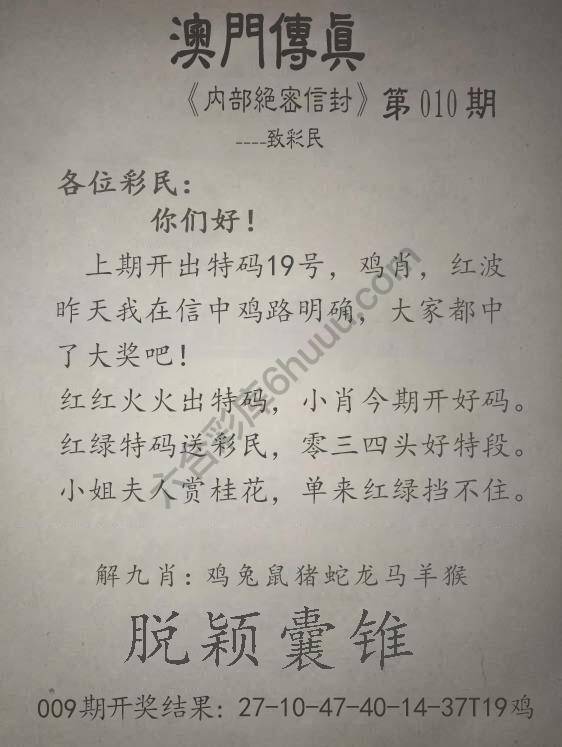 澳門傳真
《内部絕密信封》第010期
----致彩民
各位彩民：
你们好！
上期开出特码19号，鸡肖，红波
昨天我在信中鸡路明确，大家都中
了大奖吧！
红红火火出特码，小肖今期开好码。
红绿特码送彩民，零三四头好特段。
小姐夫人赏桂花，单来红绿挡不住。
解九肖：鸡兔鼠猪蛇龙马羊猴
脱颖囊锥
009期开奖结果：27-10-47-40-14-37T19鸡
六合彩库6huuu.com